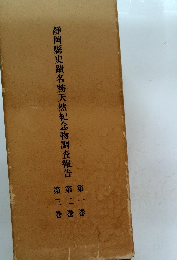 靜岡縣史蹟名勝天然紀念物調査報告
第一卷
第二卷
第三卷